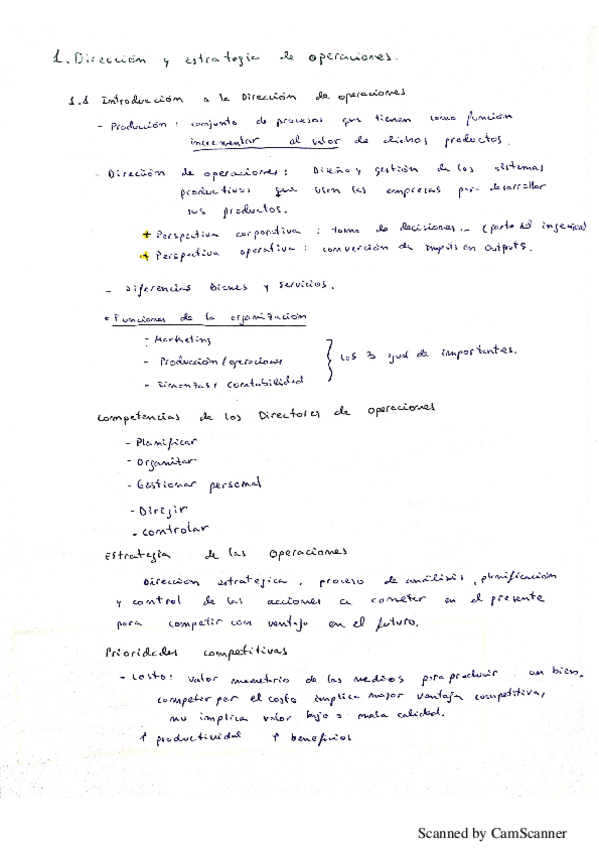 1. Dirección y estrategia de operaciones.
1.1 Introducción a la Dirección de operaciones
- Producción: conjunto de procesos que tienen como función
incrementar el valor de dichos productos.
- Dirección de operaciones: Diseño y gestión de los sistemas
productivos que usen las empresas para desarrollar
sus productos.
+ Perspectiva corporativa: toma de decisiones... (parte del ingeniero)
+ Perspectiva operativa: conversión de inputs en outputs.
- Diferencias bienes y servicios.
• Funciones de la organización
- Marketing
- Producción/operaciones
Los 3 igual de importantes.
- Finanzas y contabilidad
Competencias de los Directores de operaciones
- Planificar
- Organizar
- Gestionar personal
- Dirigir
- Controlar
Estrategia de las operaciones
Dirección estratégica, proceso de análisis, planificación
y control de las acciones a cometer en el presente
para competir con ventaja en el futuro.
Prioridades competitivas
- Costo: valor monetario de los medios para producir un bien.
competer por el costo implica mayor ventaja competitiva,
no implica valor bajo o mala calidad.
↑ productividad ↑ beneficios
Scanned by CamScanner